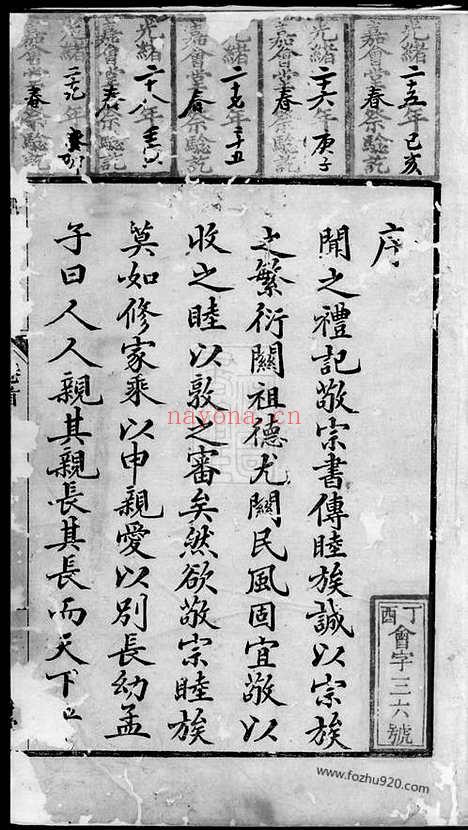 光緒二十五年己亥
嘉會堂春祭驗訖
光緒二十六年庚子
嘉會堂春祭驗訖
光緒二十七年辛丑
嘉會堂春祭驗訖
光緒二十八年壬寅
嘉會堂春祭驗訖
光緒二十九年癸卯
嘉會堂春祭驗訖
序
聞之禮記敬宗書傳睦族誠以宗族
之繁衍關祖德尤關民風固宜敬以
收之睦以敦之審矣然欲敬宗睦族
莫如修家乘以申親愛以別長幼孟
子曰人人親其親長其長而天下
丁酉
會字三六號
nayona.cn
www.fozhu920.com